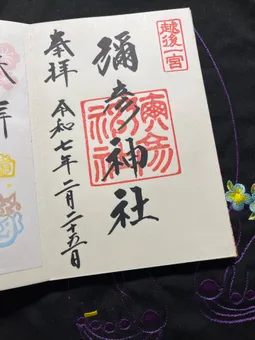 越後一宮
奉拝
彌彦神社
令和七年二月二十五日